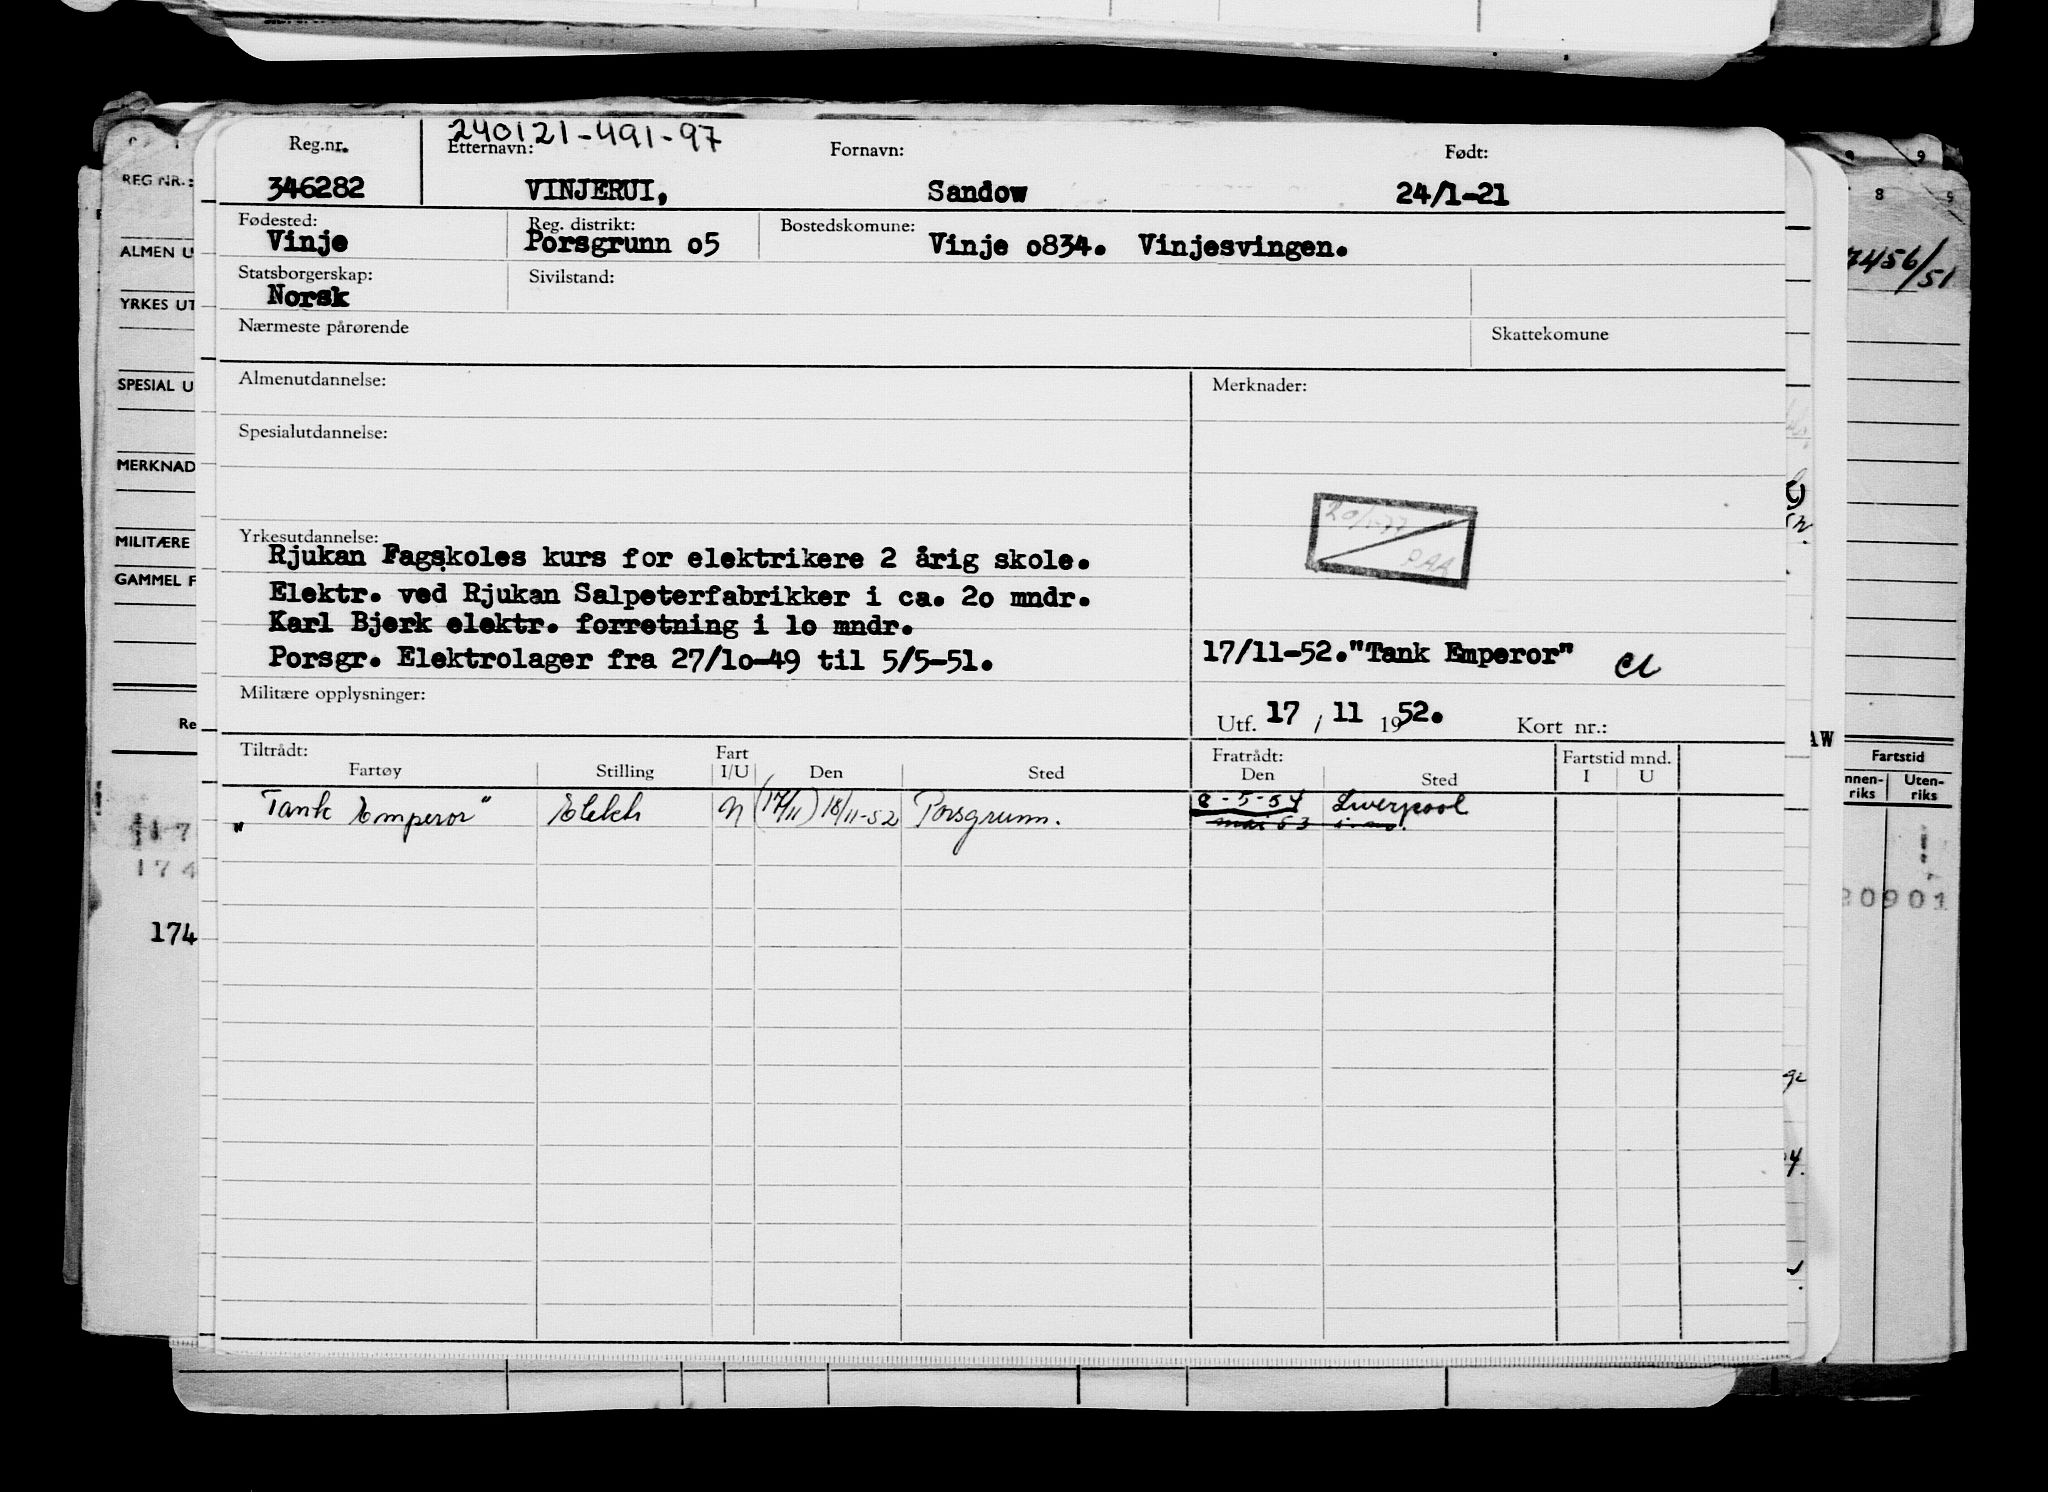 240121-491-97
Reg.nr. Etternavn: Fornavn: Født:
346282 VINJERUI, Sandow 24/1-21
Fødested: Reg. distrikt: Bostedskomune:
Vinje Porsgrunn o5 Vinje o834. Vinjesvingen.
Statsborgerskap: Sivilstand:
Norsk
Nærmeste pårørende Skattekomune
Almenutdannelse: Merknader:
Spesialutdannelse:
Yrkesutdannelse:
Rjukan Fagskoles kurs for elektrikere 2 årig skole.
Elektr. ved Rjukan Salpeterfabrikker i ca. 2o mndr.
Karl Bjerk elektr. forretning i 1o mndr.
Porsgr. Elektrolager fra 27/1o-49 til 5/5-51.
17/11-52."Tank Emperor"
Militære opplysninger:
Utf. 17 / 11 1952. Kort nr.:
Tiltrådt: Fart Fratrådt: Fartstid mnd.
Fartøy Stilling I/U Den Sted Den Sted I U
"Tank Emperor" Elektr (17/11) 18/11-52 Porsgrunn. 8-5-54 Liverpool
mai 53
REG NR.:
ALMEN U
YRKES UT
SPESIAL U
MERKNAD
MILITÆRE
GAMMEL F
Re
174
174
8 9
7456/51
AW
Fartstid
nnen-riks Uten-riks
20901